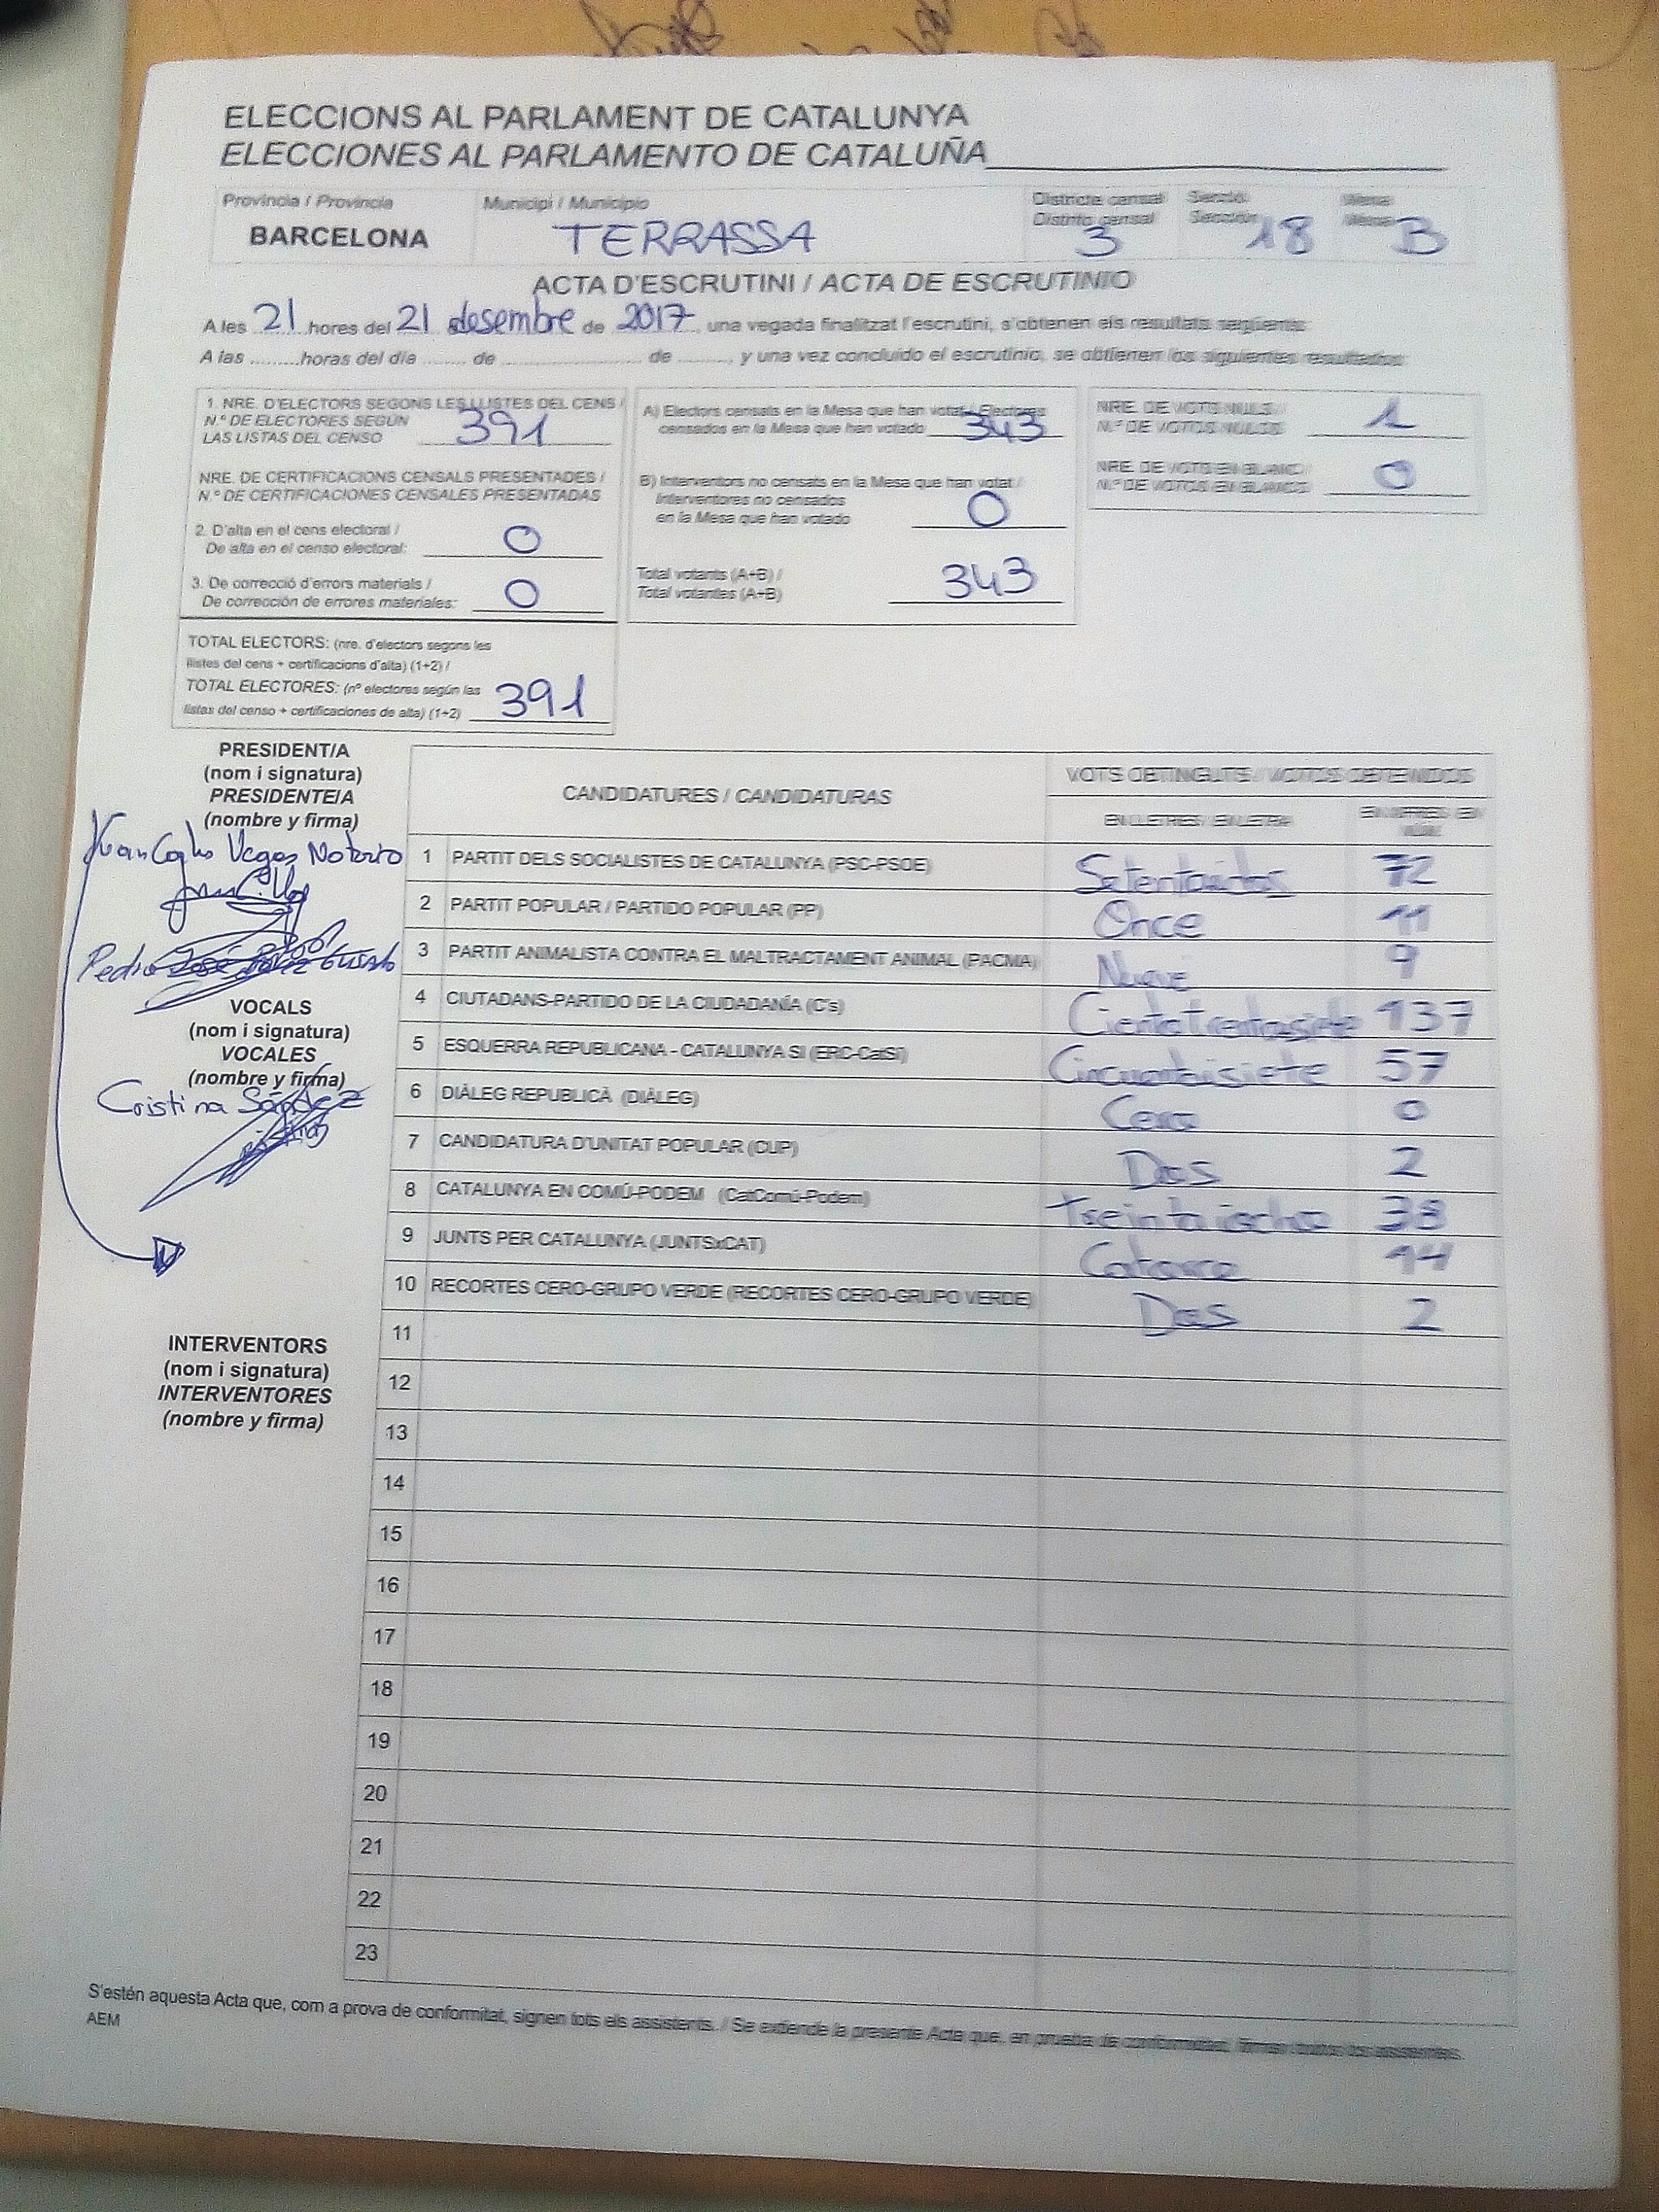 ELECCIONS AL PARLAMENT DE CATALUNYA
ELECCIONES AL PARLAMENTO DE CATALUÑA
Província / Provincia Municipi / Municipio Districte censal Secció Mesa
Distrito censal Sección Mesa
BARCELONA TERRASSA 3 18 B
ACTA D'ESCRUTINI / ACTA DE ESCRUTINIO
A les 21 hores del 21 desembre de 2017, una vegada finalitzat l'escrutini, s'obtenen els resultats següents:
A las ........horas del día ....... de ........................ de ........, y una vez concluido el escrutinio, se obtienen los siguientes resultados:
1. NRE. D'ELECTORS SEGONS LES LLISTES DEL CENS /
N.º DE ELECTORES SEGÚN
LAS LISTAS DEL CENSO 391
NRE. DE CERTIFICACIONS CENSALS PRESENTADES /
N.º DE CERTIFICACIONES CENSALES PRESENTADAS
2. D'alta en el cens electoral /
De alta en el censo electoral: 0
3. De correcció d'errors materials /
De corrección de errores materiales: 0
TOTAL ELECTORS: (nre. d'electors segons les
llistes del cens + certificacions d'alta) (1+2) /
TOTAL ELECTORES: (nº electores según las
listas del censo + certificaciones de alta) (1+2) 391
A) Electors censats en la Mesa que han votat / Electores
censados en la Mesa que han votado 343
B) Interventors no censats en la Mesa que han votat /
Interventores no censados
en la Mesa que han votado 0
Total votants (A+B) /
Total votantes (A+B) 343
NRE. DE VOTS NULS /
N.º DE VOTOS NULOS 1
NRE. DE VOTS EN BLANC /
N.º DE VOTOS EN BLANCO 0
PRESIDENT/A
(nom i signatura)
PRESIDENTE/A
(nombre y firma)
Juan Carlos Vegas Notario
Pedro José
VOCALS
(nom i signatura)
VOCALES
(nombre y firma)
Cristina
INTERVENTORS
(nom i signatura)
INTERVENTORES
(nombre y firma)
CANDIDATURES / CANDIDATURAS VOTS OBTINGUTS / VOTOS OBTENIDOS
EN LLETRES / EN LETRA EN XIFRES / EN NÚM.
1 PARTIT DELS SOCIALISTES DE CATALUNYA (PSC-PSOE) Setentaidos 72
2 PARTIT POPULAR / PARTIDO POPULAR (PP) Once 11
3 PARTIT ANIMALISTA CONTRA EL MALTRACTAMENT ANIMAL (PACMA) Nueve 9
4 CIUTADANS-PARTIDO DE LA CIUDADANÍA (C's) Cientotrentasiete 137
5 ESQUERRA REPUBLICANA - CATALUNYA SI (ERC-CatSí) Cincuentaisiete 57
6 DIÀLEG REPUBLICÀ (DIÀLEG) Cero 0
7 CANDIDATURA D'UNITAT POPULAR (CUP) Dos 2
8 CATALUNYA EN COMÚ-PODEM (CatComú-Podem) Treintaiocho 38
9 JUNTS PER CATALUNYA (JUNTSxCAT) Catorce 14
10 RECORTES CERO-GRUPO VERDE (RECORTES CERO-GRUPO VERDE) Dos 2
11
12
13
14
15
16
17
18
19
20
21
22
23
S'estén aquesta Acta que, com a prova de conformitat, signen tots els assistents. / Se extiende la presente Acta que, en prueba de conformidad, firman todos los asistentes.
AEM